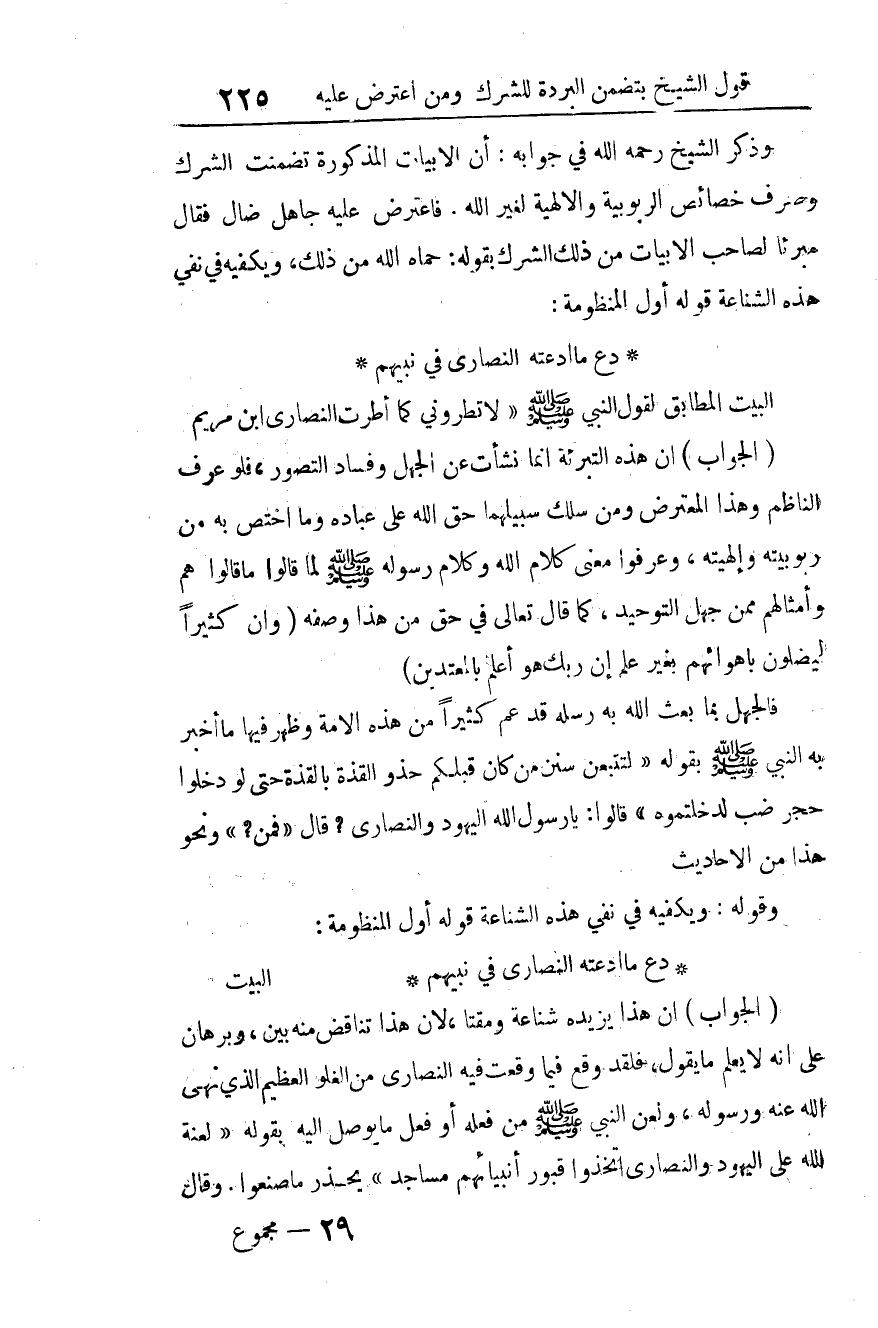 قول الشيخ بتضمن البردة للشرك ومن اعترض عليه ٢٢٥
وذكر الشيخ رحمه الله في جوابه : أن الابيات المذكورة تضمنت الشرك
وصرف خصائص الربوبية والالهية لغير الله . فاعترض عليه جاهل ضال فقال
مبرئا لصاحب الابيات من ذلك الشرك بقوله: حماه الله من ذلك، ويكفيه في نفي
هذه الشناعة قوله أول المنظومة :
* دع ماادعته النصارى في نبيهم *
البيت المطابق لقول النبي ﷺ « لاتطروني كما أطرت النصارى ابن مريم
( الجواب ) ان هذه التبرئة انما نشأت عن الجهل وفساد التصور ، فلو عرف
الناظم وهذا المعترض ومن سلك سبيلهما حق الله على عباده وما اختص به من
ربوبيته وإلهيته ، وعرفوا معنى كلام الله وكلام رسوله ﷺ لما قالوا ماقالوا هم
وأمثالهم ممن جهل التوحيد ، كما قال تعالى في حق من هذا وصفه ( وان كثيراً
ليضلون باهوائهم بغير علم إن ربك هو أعلم بالمعتدين)
فالجهل بما بعث الله به رسله قد عم كثيراً من هذه الامة وظهر فيها ماأخبر
به النبي ﷺ بقوله « لتتبعن سنن من كان قبلكم حذو القذة بالقذة حتى لو دخلوا
حجر ضب لدخلتموه » قالوا: يارسول الله اليهود والنصارى ؟ قال «فمن؟ » ونحو
هذا من الاحاديث
وقوله : ويكفيه في نفي هذه الشناعة قوله أول المنظومة :
* دع ماادعته النصارى في نبيهم * البيت
( الجواب ) ان هذا يزيده شناعة ومقتا ، لان هذا تناقض منه بين ، وبرهان
على انه لايعلم مايقول، فلقد وقع فيما وقعت فيه النصارى من الغلو العظيم الذي نهى
الله عنه ورسوله ، ولعن النبي ﷺ من فعله أو فعل مايوصل اليه بقوله « لعنة
الله على اليهود والنصارى اتخذوا قبور أنبيائهم مساجد » يحذر ماصنعوا . وقال
٢٩ — مجموع